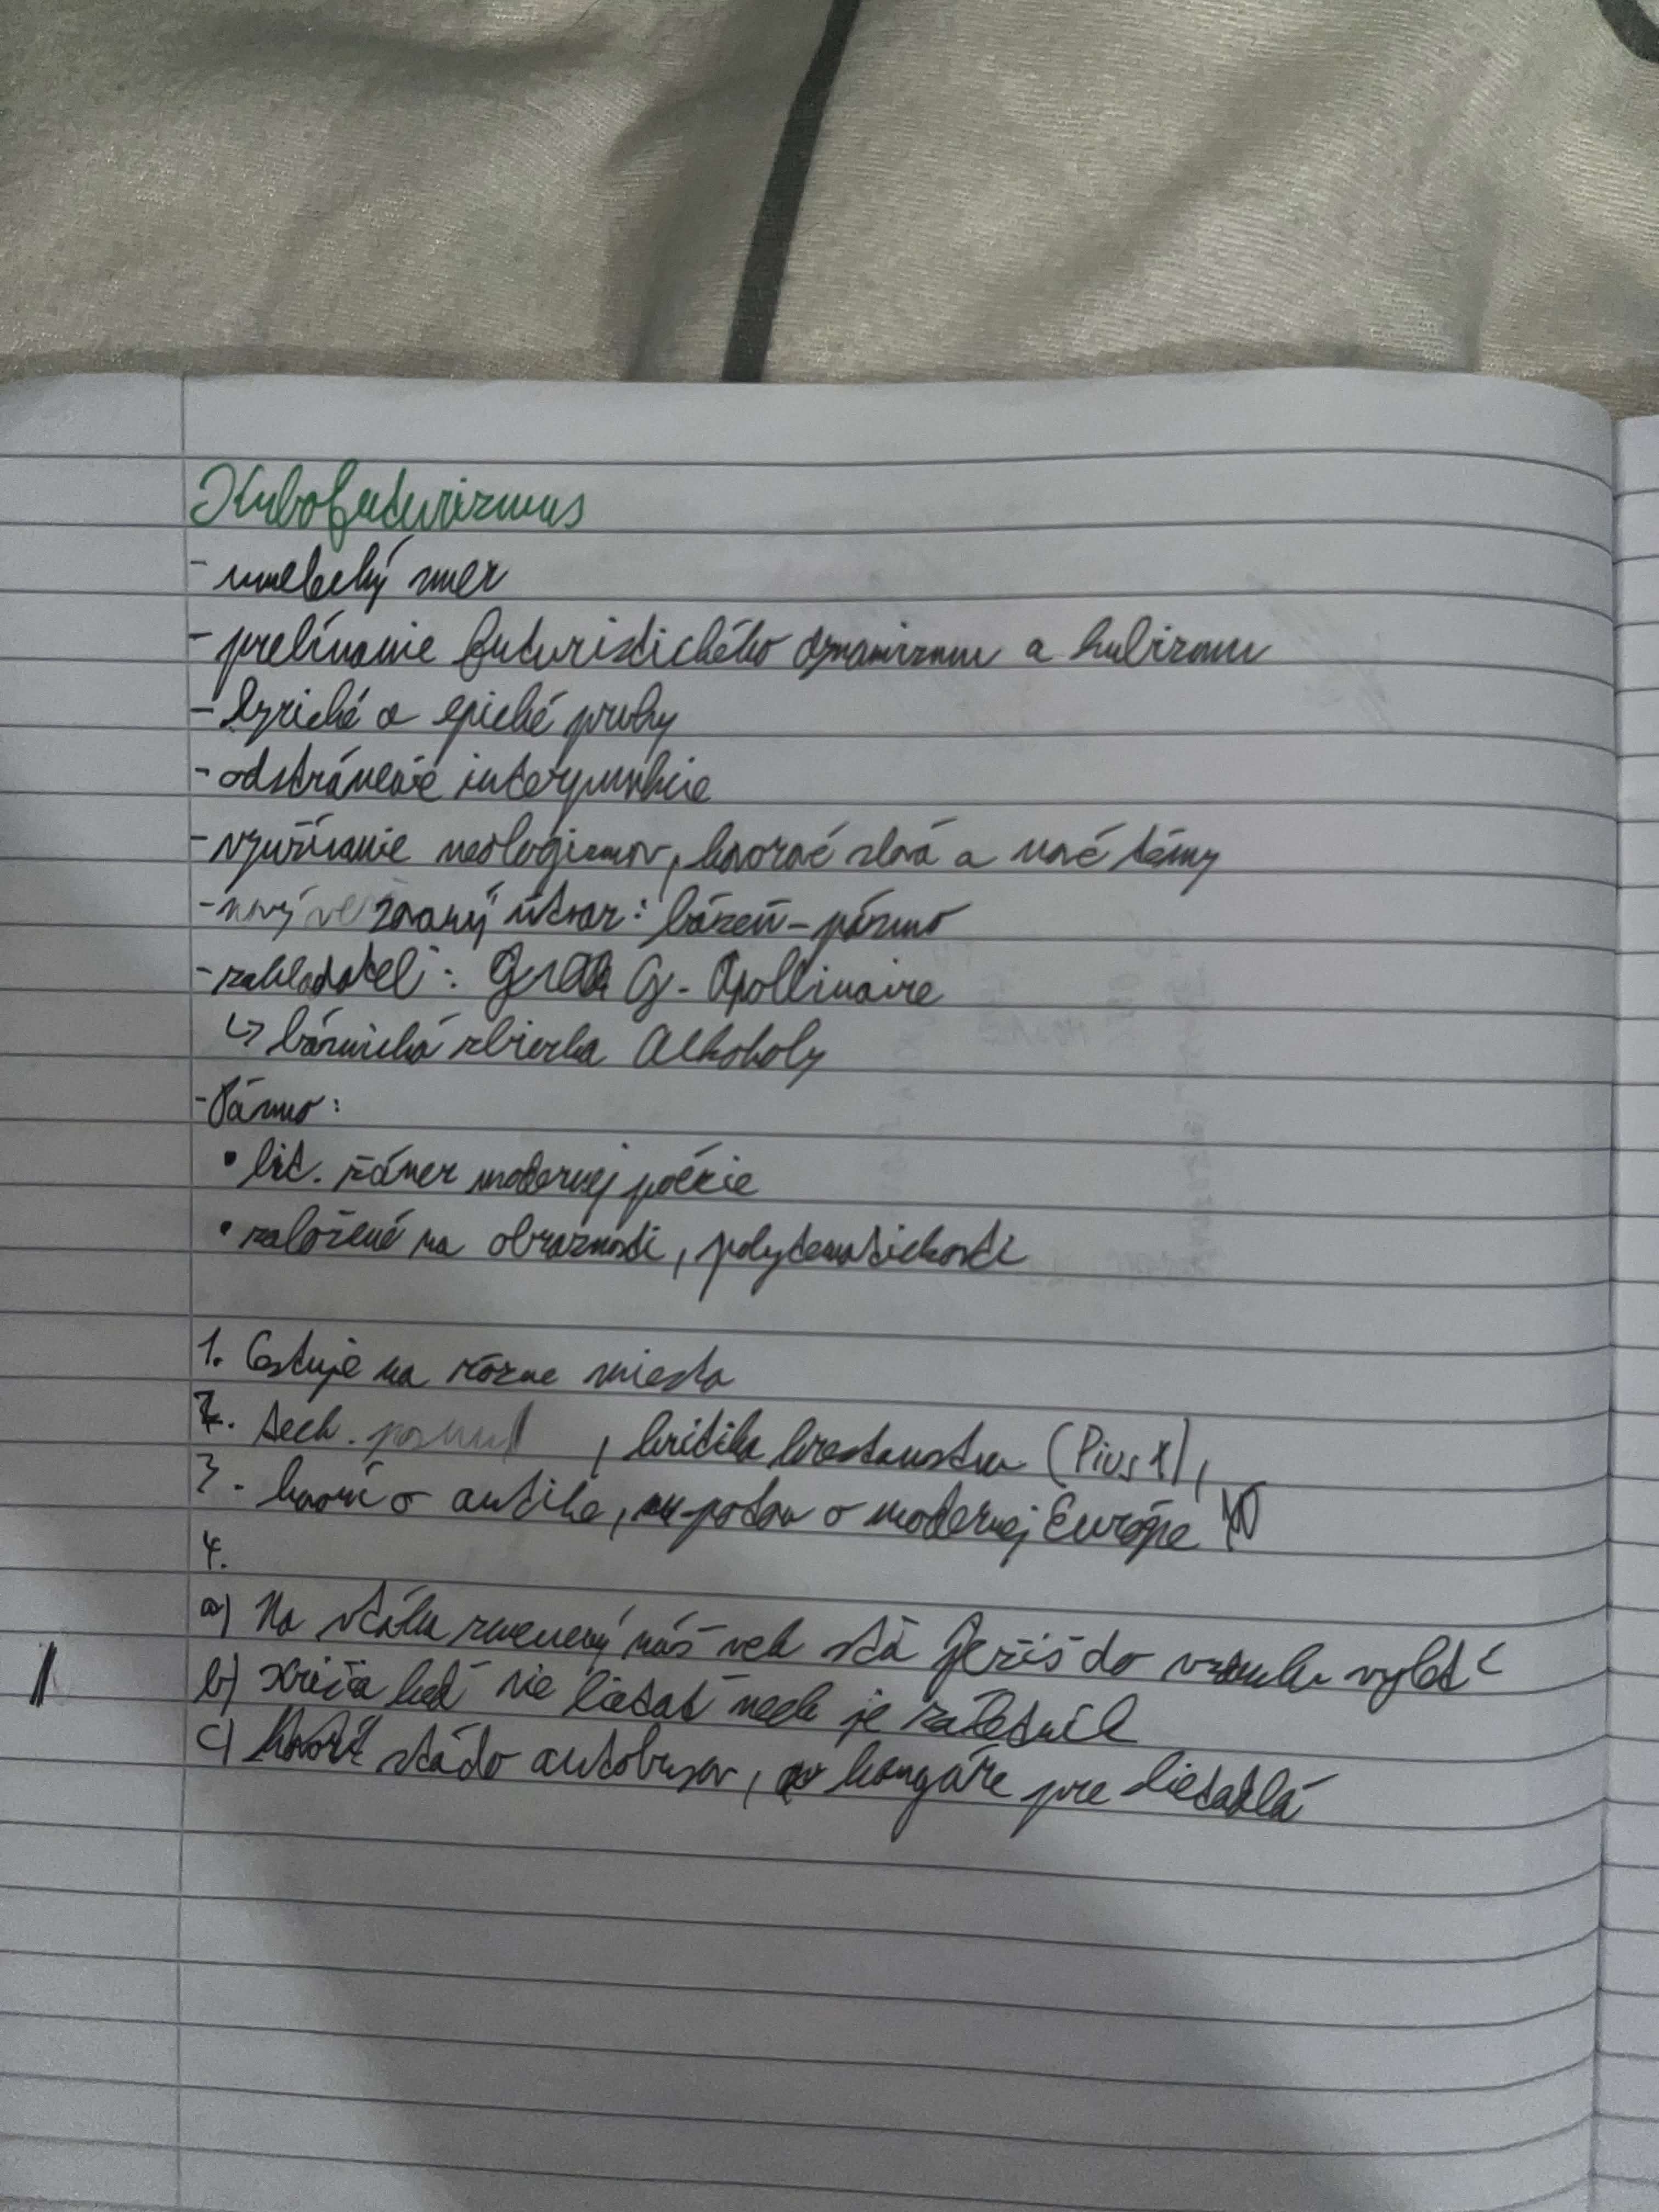 Kubofuturizmus
- umelecký smer
- prelínanie futuristického dynamizmu a kubizmu
- lyrické a epické pruhy
- odstránenie interpunkcie
- využívanie neologizmov, hovorové slová a nové témy
- nový žánrový útvar: báseň - pásmo
- zakladateľ: G. Apollinaire
↳ básnická zbierka Alkoholy
- Pásmo:
• lit. žáner modernej poézie
• založené na obraznosti, polytematickosti
1. Cestuje na rôzne miesta
2. tech. , kritika krestanstva (Pius X),
3. hovorí o antike, potom o modernej Európe
4.
a) Na vtáka zmenený náš vek stá Ježiš do vzduchu vyletí
b) kričia keď vie lietať nech je záletník
c) stádo autobusov, hangáre pre lietadlá